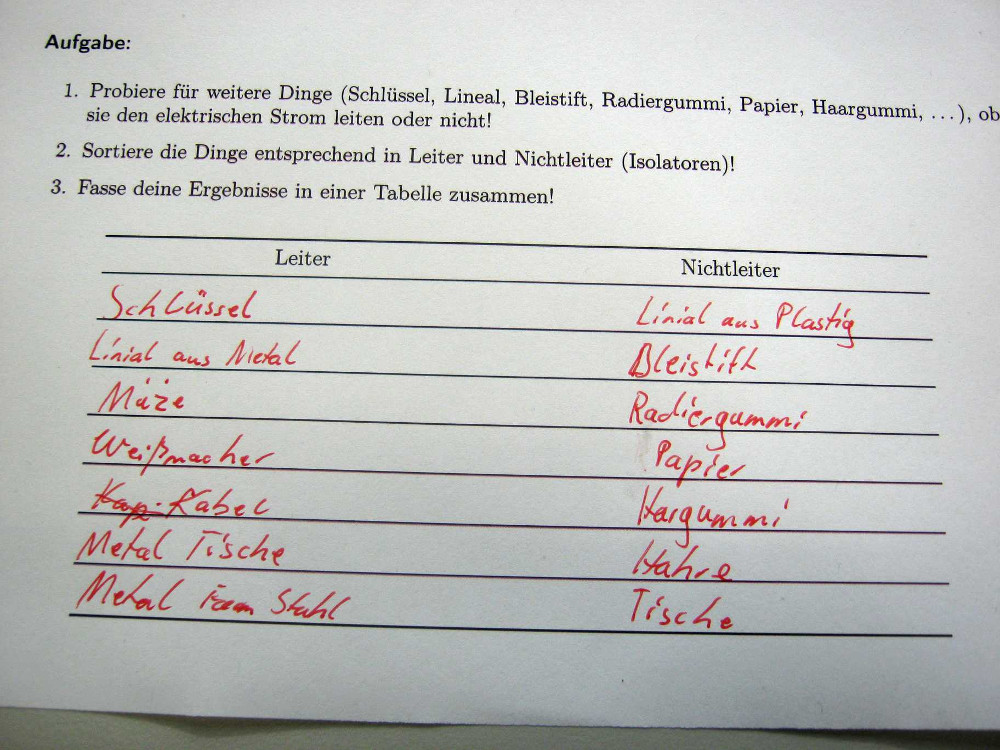 Aufgabe:
1. Probiere für weitere Dinge (Schlüssel, Lineal, Bleistift, Radiergummi, Papier, Haargummi, ...), ob
sie den elektrischen Strom leiten oder nicht!
2. Sortiere die Dinge entsprechend in Leiter und Nichtleiter (Isolatoren)!
3. Fasse deine Ergebnisse in einer Tabelle zusammen!
Leiter Nichtleiter
Schlüssel Linial aus Plastig
Linial aus Metal Bleistift
Mäze Radiergummi
Weißmacher Papier
Kabel Hargummi
Metal Tische Hahre
Metal Stahl Tische